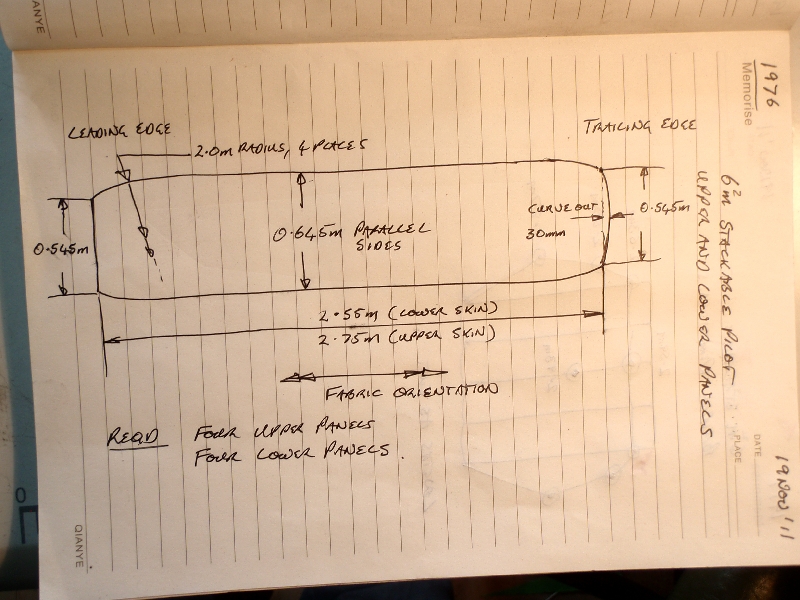 1976
Memorise
6²m STACKABLE PILOT
UPPER AND LOWER PANELS
DATE
19 NOV '11
PLACE
LEADING EDGE
TRAILING EDGE
2.0m RADIUS, 4 PLACES
0.545m
0.645m PARALLEL
SIDES
CURVE OUT
30mm
0.545m
2.55m (LOWER SKIN)
2.75m (UPPER SKIN)
FABRIC ORIENTATION
REQD FOUR UPPER PANELS
FOUR LOWER PANELS.
QIANYE
ANYE
0